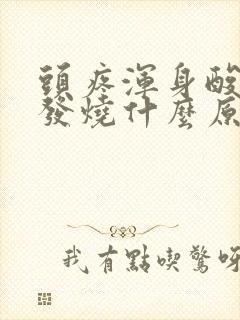 頭疼渾身酸
發燒什麼原
我有點喫驚呀